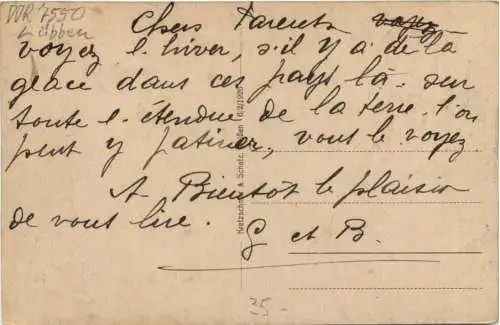 DDR 7550
Lübben
Chers Parents
voyez l'hiver, s'il y a de la
glace dans ces pays là. sur
toute l'étendue de la terre l'on
peut y patiner, vous le voyez
A Bientôt le plaisir
de vous lire.
G et B.
25